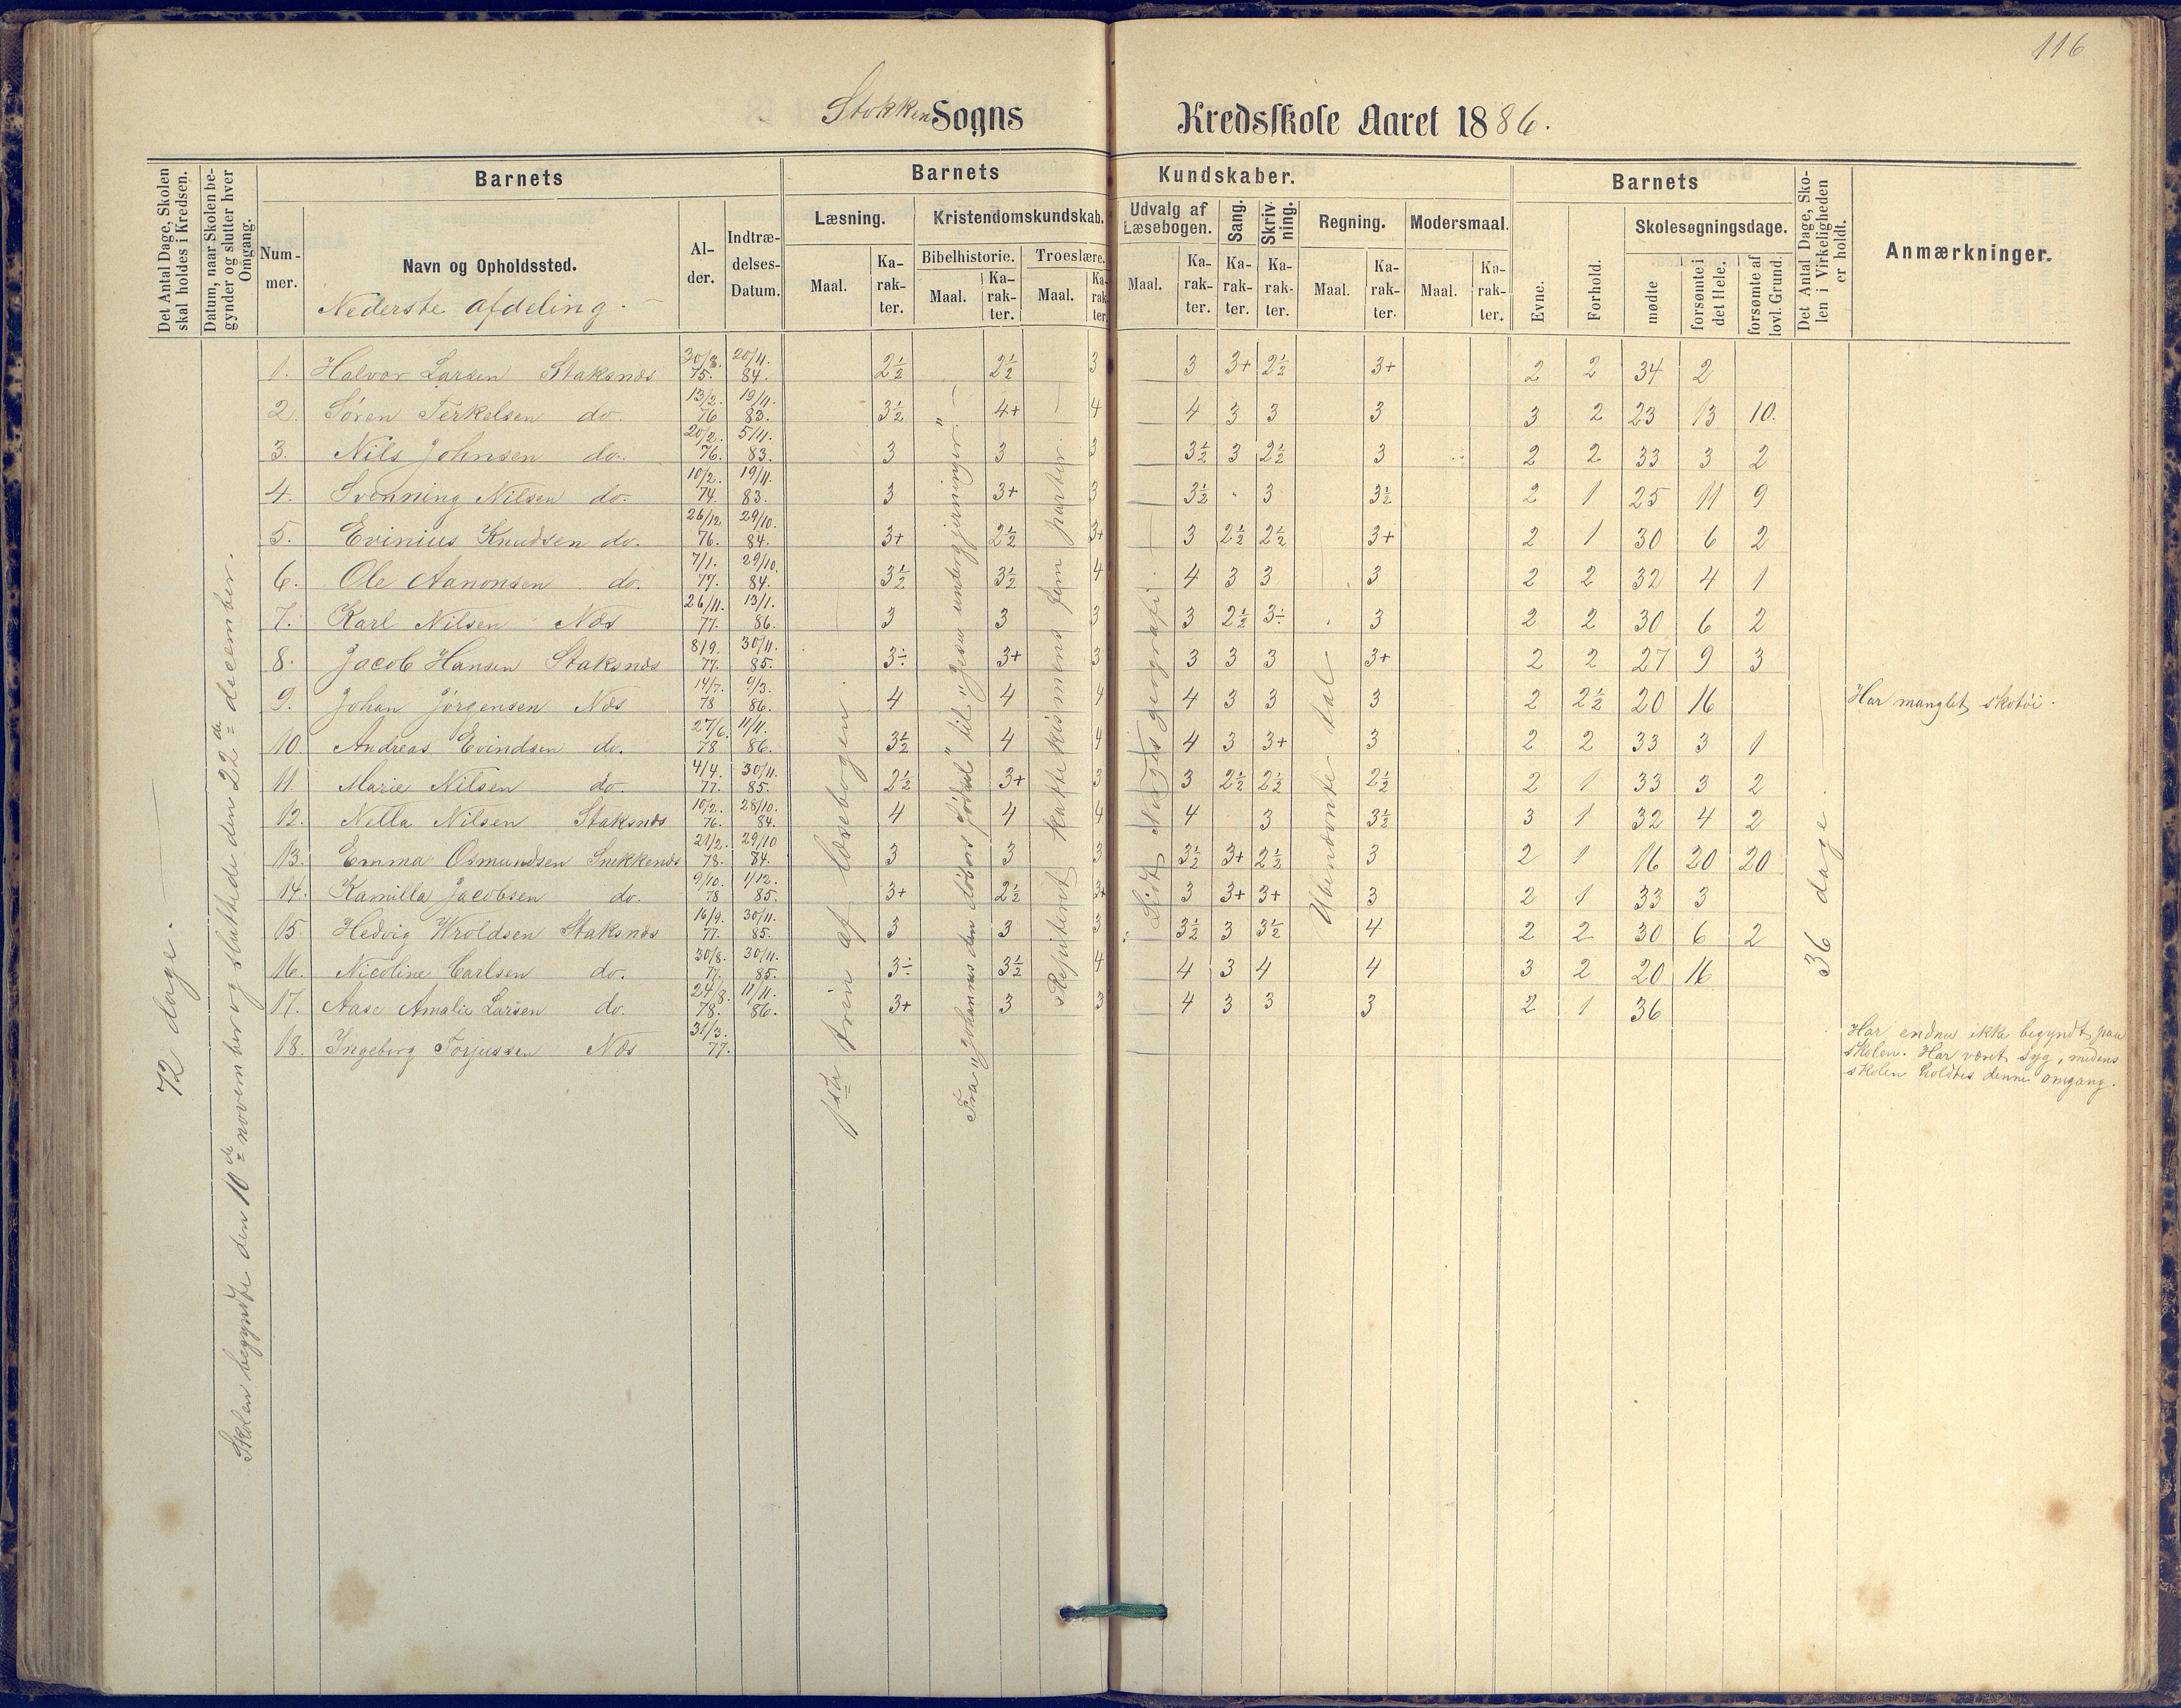 116
Stokken Sogns Kredsskole Aaret 1886.
Det Antal Dage, Skolen skal holdes i Kredsen.
Datum, naar Skolen begynder og slutter hver Omgang.
Barnets
Nummer.
Navn og Opholdssted.
Nederste afdeling.
Alder.
Indtrædelses-Datum.
Barnets Kundskaber.
Læsning.
Maal.
Karakter.
Kristendomskundskab.
Bibelhistorie.
Maal.
Karakter.
Troeslære.
Maal.
Karakter.
Udvalg af Læsebogen.
Maal.
Karakter.
Sang.
Karakter.
Skrivning.
Karakter.
Regning.
Maal.
Karakter.
Modersmaal.
Maal.
Karakter.
Barnets
Evne.
Forhold.
Skolesøgningsdage.
mødte
forsømte i det Hele.
forsømte af lovl. Grund.
Det Antal Dage, Skolen i Virkeligheden er holdt.
Anmærkninger.
72 dage.
Skolen begyndte den 10de november og sluttede den 22de december.
1ste trin af læsebogen.
Fra "Johannes den døbers fødsel" til "Jesu undergjerninger"
Repiteret katekismens fem parter.
Lidt Norges geografi.
Ubenævnte tal
36 dage
1. Halvor Larsen Staksnæs 30/8. 75. 20/11. 84. 2½ 2½ 3 3 3+ 2½ 3+ 2 2 34 2
2. Søren Terkelsen do. 13/2. 76 19/11. 83. 3½ 4+ 4 4 3 3 3 3 2 23 13 10.
3. Nils Johnsen do. 20/2. 76. 5/11. 83. 3 3 3 3½ 3 2½ 3 2 2 33 3 2
4. Svenning Nilsen do. 10/2. 74. 19/11. 83. 3 3+ 3 3½ " 3 3½ 2 1 25 11 9
5. Evinius Knudsen do. 26/12 76. 29/10. 84. 3+ 2½ 3+ 3 2½ 2½ 3+ 2 1 30 6 2
6. Ole Aanonsen do. 7/1. 77. 29/10. 84. 3½ 3½ 4 4 3 3 3 2 2 32 4 1
7. Karl Nilsen Næs 26/11. 77. 13/1. 86. 3 3 3 3 2½ 3÷ 3 2 2 30 6 2
8. Jacob Hansen Staksnæs 8/9. 77. 30/11. 85. 3÷ 3+ 3 3 3 3 3+ 2 2 27 9 3
9. Johan Jörgensen Næs 14/7. 78 9/3. 86. 4 4 4 4 3 3 3 2 2½ 20 16 Har manglet skotøi.
10. Andreas Evindsen do. 27/6. 78 11/11. 86. 3½ 4 4 4 3 3+ 3 2 2 33 3 1
11. Marie Nilsen do. 4/4. 77. 30/11. 85. 2½ 3+ 3 3 2½ 2½ 2½ 2 1 33 3 2
12. Nella Nilsen Staksnæs 10/2. 76. 28/10. 84. 4 4 4 4 3 3½ 3 1 32 4 2
13. Emma Osmundsen Snekkenæs 21/2. 78. 29/10 84. 3 3 3 3½ 3+ 2½ 3 2 1 16 20 20
14. Kamilla Jacobsen do. 9/10. 78 1/12. 85. 3+ 2½ 3+ 3 3+ 3+ 3 2 1 33 3
15. Hedvig Wroldsen Staksnæs 16/9. 77. 30/11. 85. 3 3 3 3½ 3 3½ 4 2 2 30 6 2
16. Nicoline Carlsen do. 30/8. 77. 30/11. 85. 3÷ 3½ 4 4 3 4 4 3 2 20 16
17. Aase Amalie Larsen do. 24/8. 78. 11/11. 86. 3+ 3 3 4 3 3 3 2 1 36
18. Ingeborg Torjussen Næs 31/3. 77.
Har endnu ikke begyndt paa
skolen. Har været syg, medens
skolen holdtes denne omgang.